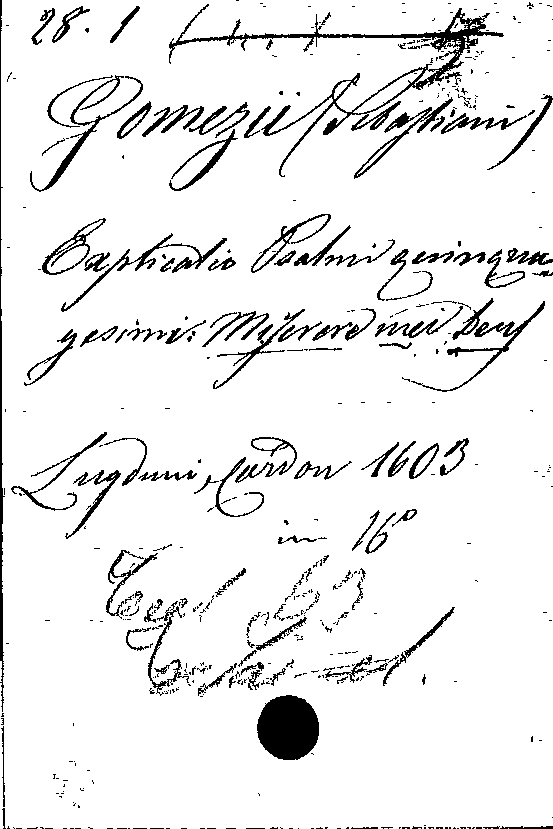 28. 1
Gomezii (Sebastiani)
Explicatio Psalmi quinqua-
gesimi: Miserere mei Deus
Lugduni, Cardon 1603
in 16°